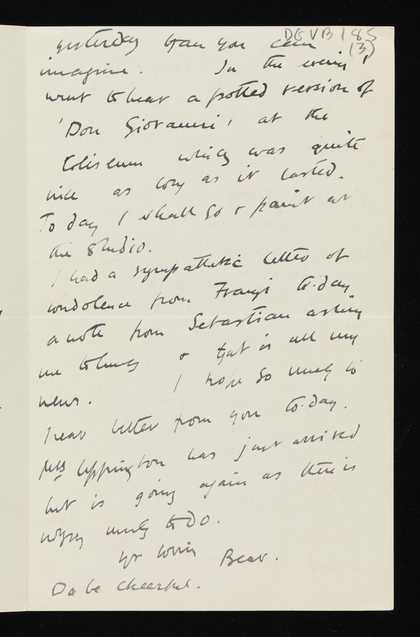 DGVB 185
(3)
yesterday than you can
imagine. In the evening I
went to hear a potted version of
'Don Giovanni' at the
Coliseum which was quite
nice as long as it lasted.
To day I shall go & paint at
the studio.
I had a sympathetic letter of
condolence from Frangi to-day
a note from Sebastian asking
me to lunch & that is all my
news. I hope so much to
hear better from you to-day.
Uppington has just arrived
but is going again as there is
much to do.
yr loving Bear.
Do be cheerful.